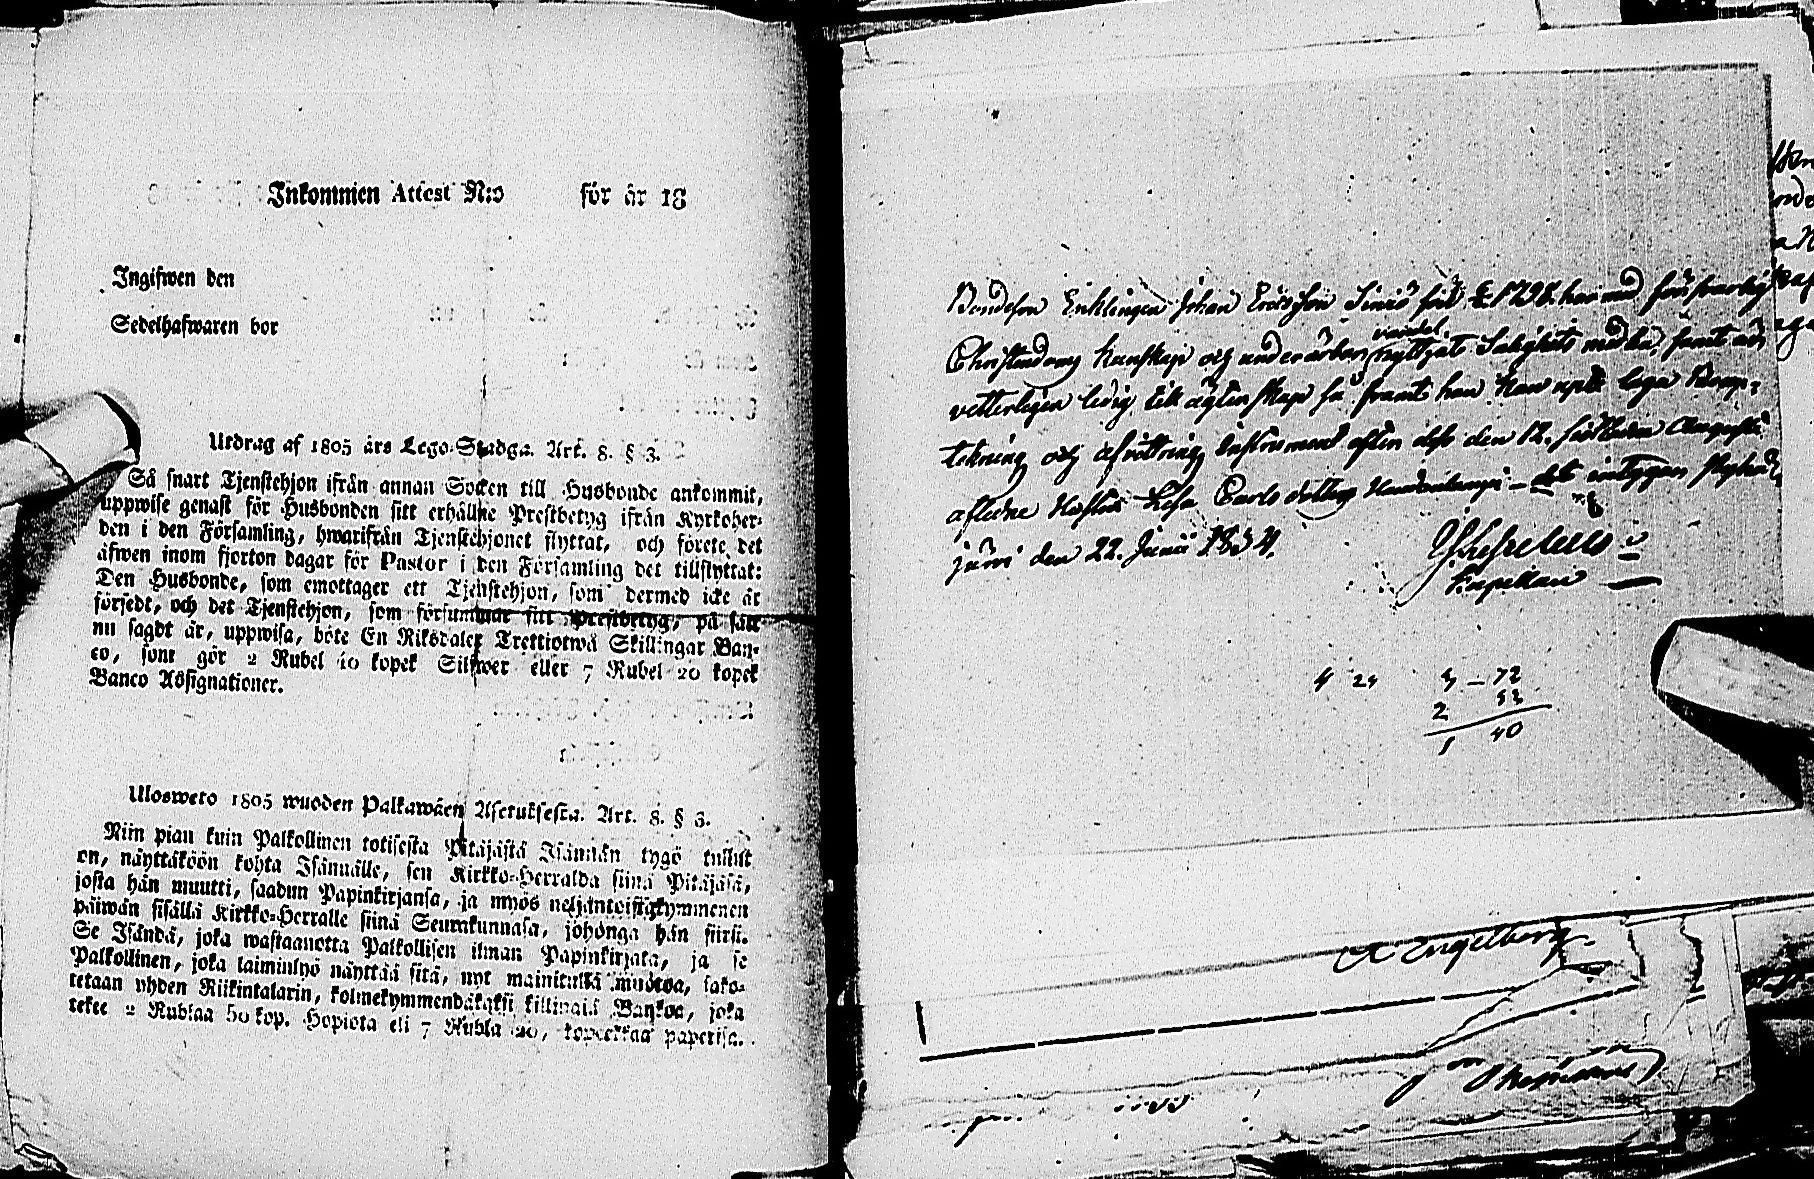 Inkommen Attest N:o för år 18
Ingifwen den
Sedelhafwaren bor
Utdrag af 1805 års Lego-Stadga. Art. 8. § 3.
Så snart Tjenstehjon ifrån annan Socken till Husbonde ankommit,
uppwise genast för Husbonden sitt erhållne Prestbetyg ifrån Kyrkoher-
den i den Församling, hwarifrån Tjenstehjonet flyttat, och förete det
äfwen inom fjorton dagar för Pastor i den Församling det tillflyttat:
Den Husbonde, som emottager ett Tjenstehjon, som dermed icke är
försedt, och det Tjenstehjon, som försummar sitt Prestbetyg, på sätt
nu sagdt är, uppwisa, böte En Riksdaler Trettiotwå Skillingar Ban-
co, som gör 2 Rubel 10 kopek Silfwer eller 7 Rubel 20 kopek
Banco Assignationer.
Ulosweto 1805 wuoden Palkawäen Asetuksesta. Art. 8. § 3.
Niin pian kuin Palkollinen toisesta Pitäjästä Isännän tygö tullut
on, näyttäköön kohta Isännälle, sen Kirkko-Herralda siinä Pitäjäsä,
josta hän muutti, saadun Papinkirjansa, ja myös neljäntoistakymmenen
päiwän sisällä Kirkko-Herralle siinä Seurakunnasa, johonga hän siirsi.
Se Isändä, joka wastaanotta Palkollisen ilman Papinkirjata, ja se
Palkollinen, joka laiminlyö näyttää sitä, nyt mainitulla muotoa, sako-
tetaan yhden Riikintalarin, kolmekymmendäkaksi killingiä Bankoa, joka
tekee 2 Rublaa 50 kop. Hopiota eli 7 Rubla 20, kopeekkaa paperisa.
Bondeson Enklingen Johan Ersson född 1798. har med försvarlig
Christendoms kunskap och under ärbar vandel nyttjat Salighets medlen, samt är
vetterligen ledig till äktenskap så framt han kan uplägga
och afvittrings Instrument efter dess den 12. sistledne Augusti
aflidne Hustru Lisa Carls dotter det intygar
den 22. Junii 1834.
Kapellan
4 24 4 - 72
2 53
1 40
A Engelberg